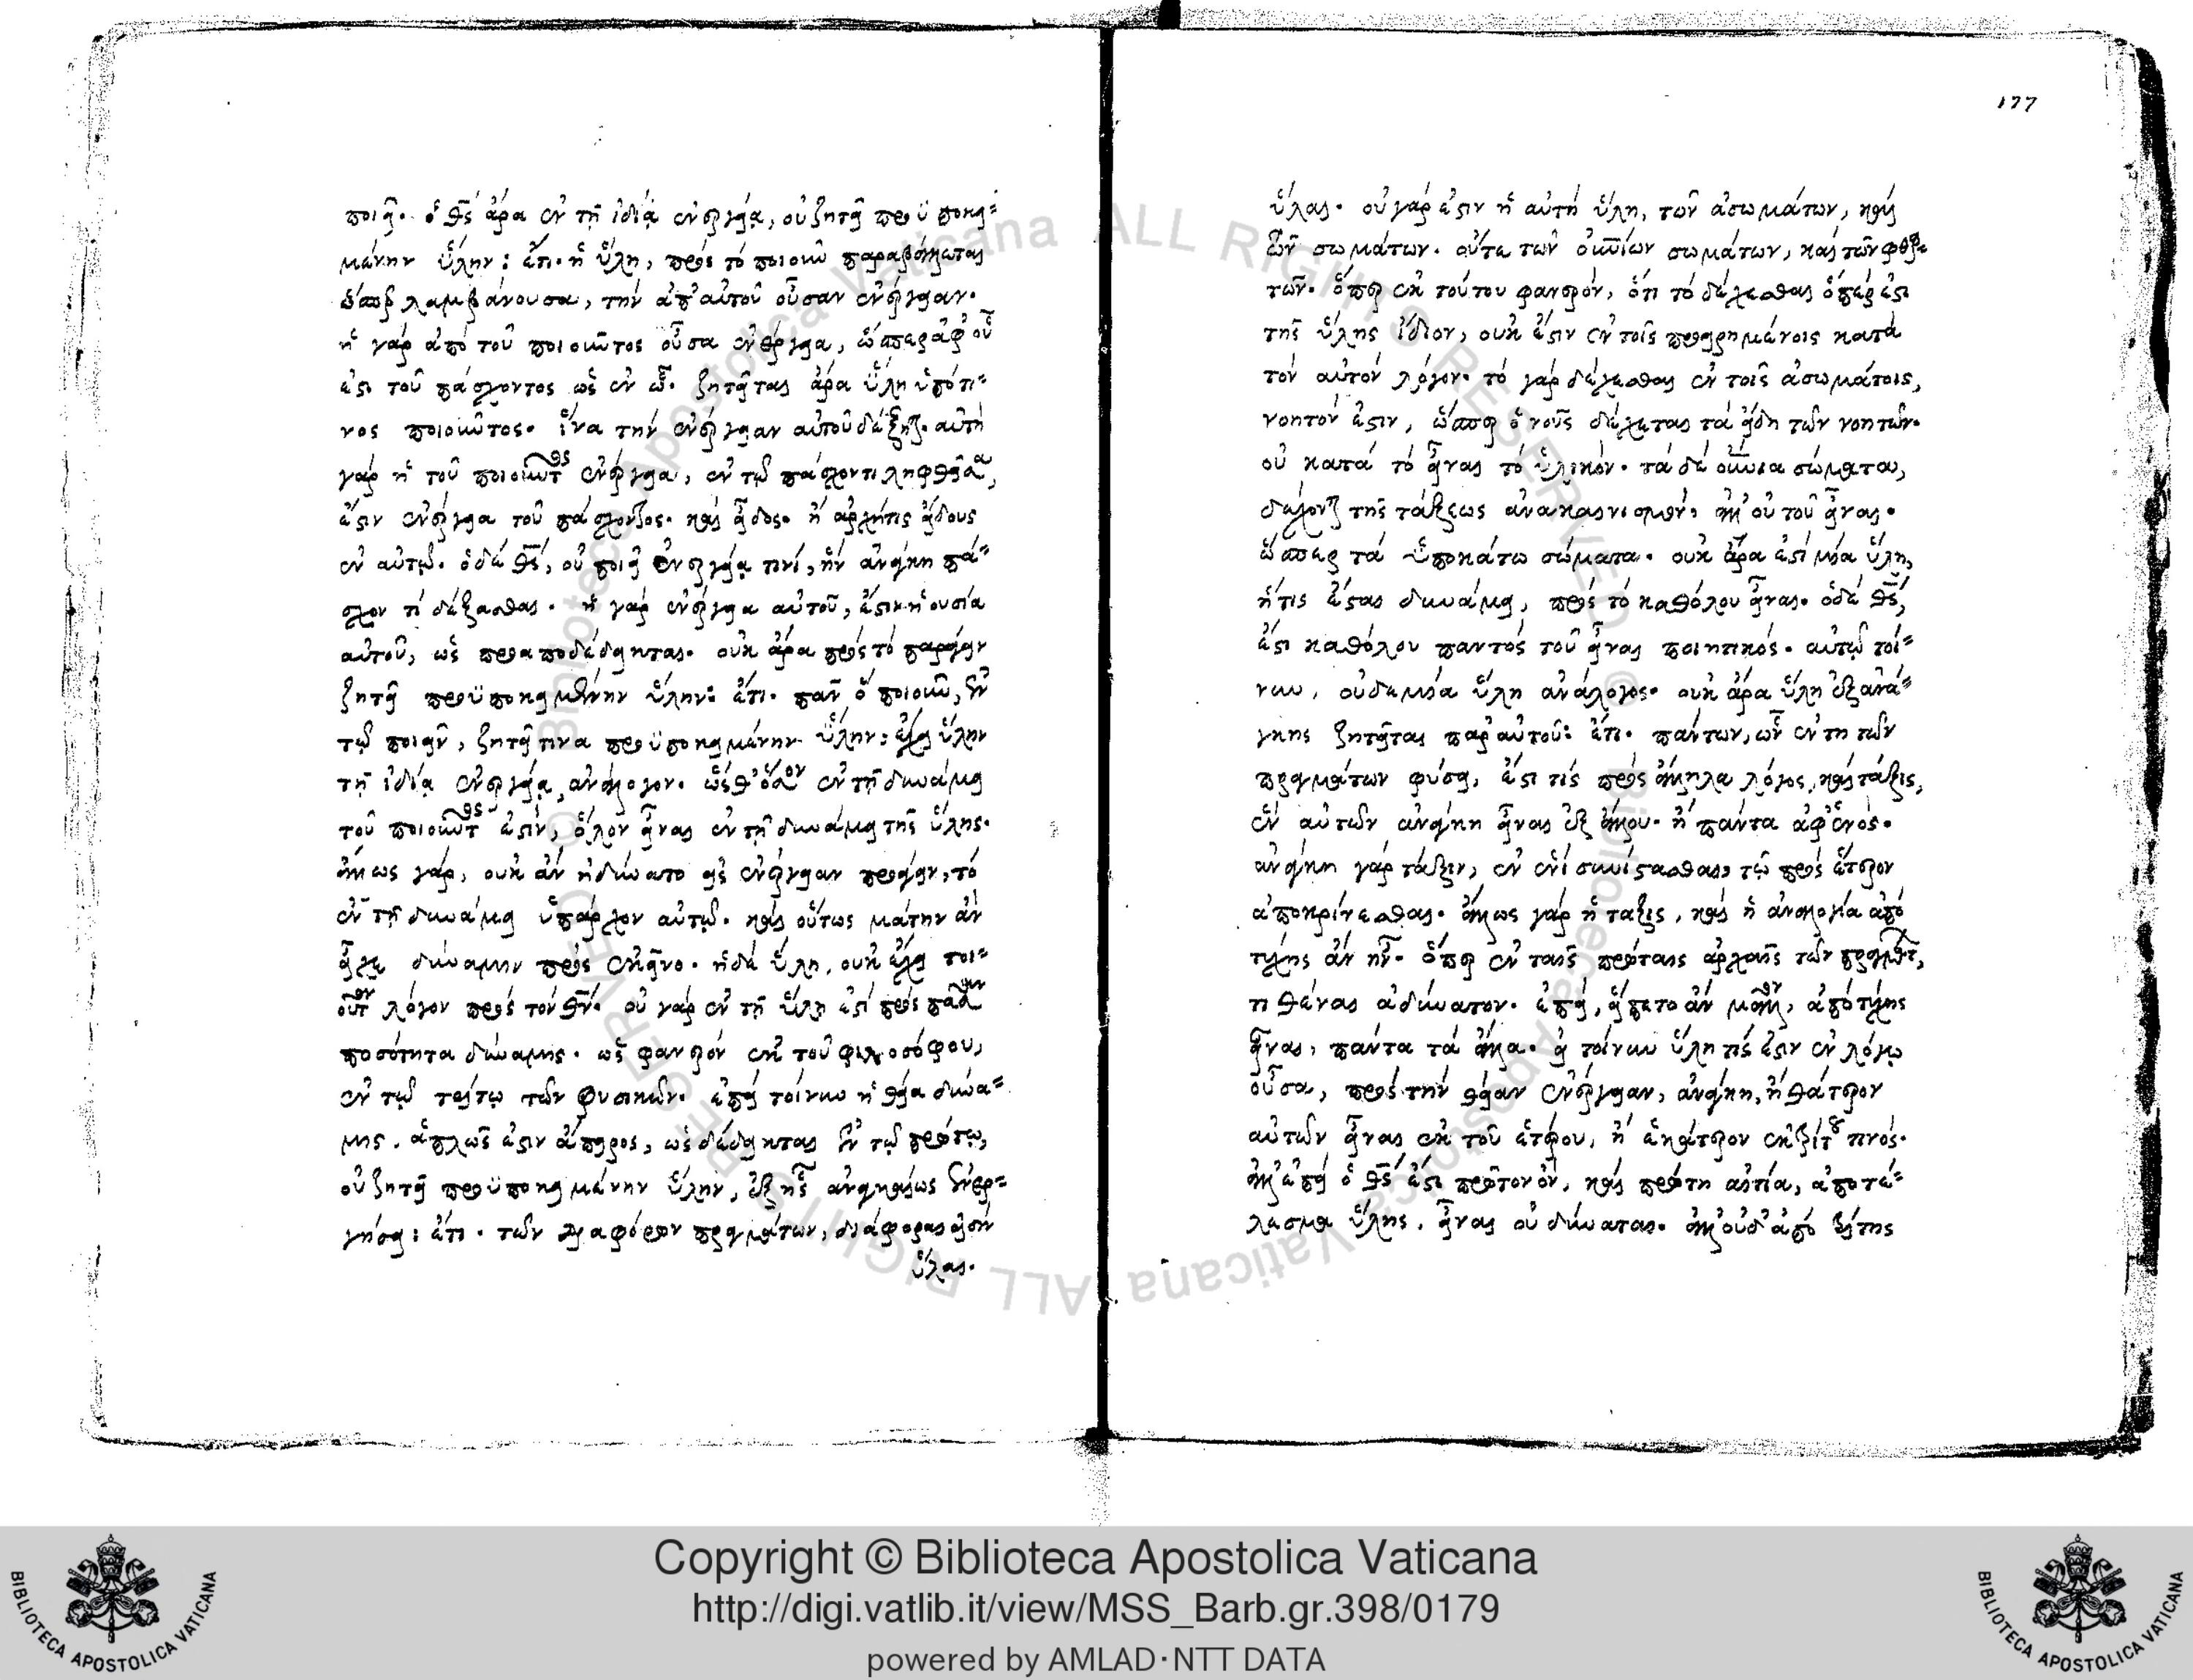 ποιεῖ. ὁ θς ἄρα ἐν τῇ ἰδίᾳ ἐνεργείᾳ, οὐ ζητεῖ προϋποκει=
μένην ὕλην: ἔτι. ἡ ὕλη, πρὸς τὸ ποιοῦν παραβάλλεται
ὥσπερ λαμβάνουσα, τὴν ἀπ' αὐτοῦ οὖσαν ἐνέργειαν.
ἡ γὰρ ἀπὸ τοῦ ποιοῦντος οὖσα ἐνέργεια, ὥσπερ ἀφ' οὗ
ἐστι τοῦ πάσχοντος ὡς ἐν ᾧ. ζητεῖται ἄρα ὕλη ὑπό τι=
νος ποιοῦντος. ἵνα τὴν ἐνέργειαν αὐτοῦ δέξηται. αὐτὴ
γὰρ ἡ τοῦ ποιοῦντος ἐνέργεια, ἐν τῷ πάσχοντι ληφθεῖσα,
ἐστὶν ἐνέργεια τοῦ πάσχοντος. καὶ εἶδος. ἢ ἀρχή τις εἴδους
ἐν αὐτῷ. ὁ δὲ θς, οὐ ποιεῖ ἐνεργείᾳ τινί, ἣν ἀνάγκη πά=
σχον τί δέξασθαι. ἡ γὰρ ἐνέργεια αὐτοῦ, ἐστὶν ἡ οὐσία
αὐτοῦ, ὡς προαποδέδεικται. οὐκ ἄρα πρὸς τὸ παράγειν
ζητεῖ προϋποκειμένην ὕλην: ἔτι. πᾶν ὃ ποιοῦν, ἐν
τῷ ποιεῖν, ζητεῖ τινα προϋποκειμένην ὕλην: ἔχει ὕλην
τῇ ἰδίᾳ ἐνεργείᾳ, ἀνάλογον. ὥσθ' ὅσον ἐν τῇ δυνάμει
τοῦ ποιοῦντος ἐστὶν, ὅλον εἶναι ἐν τῇ δυνάμει τῆς ὕλης.
ἄλλως γὰρ, οὐκ ἂν ἠδύνατο εἰς ἐνέργειαν προάγειν, τὸ
ἐν τῇ δυνάμει ὑπάρχον αὐτῷ. καὶ οὕτως μάτην ἂν
εἶχε δύναμιν πρὸς ἐκεῖνο. ἡ δὲ ὕλη, οὐκ ἔχει τοι=
οῦτον λόγον πρὸς τὸν θν. οὐ γὰρ ἐν τῇ ὕλῃ ἐστὶ πρὸς πᾶσαν
ποσότητα δύναμις. ὡς φανερὸν ἐκ τοῦ φιλοσόφου,
ἐν τῷ τρίτῳ τῶν φυσικῶν. ἐπεὶ τοίνυν ἡ θεία δύνα=
μις. ἁπλῶς ἐστιν ἄπειρος, ὡς δέδεικται ἐν τῷ πρώτῳ,
οὐ ζητεῖ προϋποκειμένην ὕλην, ἐξ ἧς ἀναγκαίως ἐνερ=
γήσει: ἔτι. τῶν διαφόρων πραγμάτων, διάφοραι εἰσὶν
ὗλαι.
177
ὗλαι. οὐ γάρ ἐστιν ἡ αὐτὴ ὕλη, τῶν ἀσωμάτων, καὶ
τῶν σωμάτων. οὔτε τῶν οὐνίων σωμάτων, καὶ τῶν φθαρ=
τῶν. ὅπερ ἐκ τούτου φανερόν, ὅτι τὸ δέχεσθαι ὅπερ ἐστὶ
τῆς ὕλης ἴδιον, οὐκ ἔστιν ἐν τοῖς προειρημένοις κατὰ
τὸν αὐτὸν λόγον. τὸ γὰρ δέχεσθαι ἐν τοῖς ἀσωμάτοις,
νοητόν ἐστιν, ὥσπερ ὁ νοῦς δέχεται τὰ εἴδη τῶν νοητῶν.
οὐ κατὰ τὸ εἶναι τὸ ὑλικόν. τὰ δὲ οὐνια σώματα,
δέχονται τῆς τάξεως ἀνακαινισμόν, ἀλλ' οὐ τοῦ εἶναι.
ὥσπερ τὰ ὑποκάτω σώματα. οὐκ ἄρα ἐστὶ μία ὕλη,
ἥτις ἔσται δυνάμει, πρὸς τὸ καθόλου εἶναι. ὁ δὲ θς,
ἐστὶ καθόλου παντὸς τοῦ εἶναι ποιητικός. αὐτῷ τοί=
νυν, οὐδεμία ὕλη ἀνάλογος. οὐκ ἄρα ὕλη ἐξ ἀνά=
γκης ζητεῖται παρ' αὐτοῦ: ἔτι. πάντων, ὧν ἐν τῇ τῶν
πραγμάτων φύσει, ἐστί τις πρὸς ἄλληλα λόγος, καὶ τάξις,
ἓν αὐτῶν ἀνάγκη εἶναι ἐξ ἄλλου. ἢ πάντα ἀφ' ἑνός.
ἀνάγκη γὰρ τάξιν, ἐν ἑνὶ συνίστασθαι, τῷ πρὸς ἕτερον
ἀποκρίνεσθαι. ἄλλως γὰρ ἡ τάξις, καὶ ἡ ἀναλογία ἀπὸ
τύχης ἂν ἦν. ὅπερ ἐν ταῖς πρώταις ἀρχαῖς τῶν πραγμάτων,
τιθέναι ἀδύνατον. ἐπεὶ, εἵπετο ἂν μᾶλλον, ἀπὸ τύχης
εἶναι, πάντα τὰ ἄλλα. εἰ τοίνυν ὕλη τίς ἐστιν ἐν λόγῳ
οὖσα, πρὸς τὴν θείαν ἐνέργειαν, ἀνάγκη, ἢ θάτερον
αὐτῶν εἶναι ἐκ τοῦ ἑτέρου, ἢ ἑκάτερον ἐκ τρίτου τινός.
ἀλλ' ἐπεὶ ὁ θς ἐστι πρῶτον ὄν, καὶ πρώτη αἰτία, ἀποτέ=
λεσμα ὕλης, εἶναι οὐ δύναται. ἀλλ' οὐδ' ἀπὸ τρίτης
Copyright © Biblioteca Apostolica Vaticana
http://digi.vatlib.it/view/MSS_Barb.gr.398/0179
powered by AMLAD·NTT DATA
BIBLIOTECA APOSTOLICA VATICANA
BIBLIOTECA APOSTOLICA VATICANA